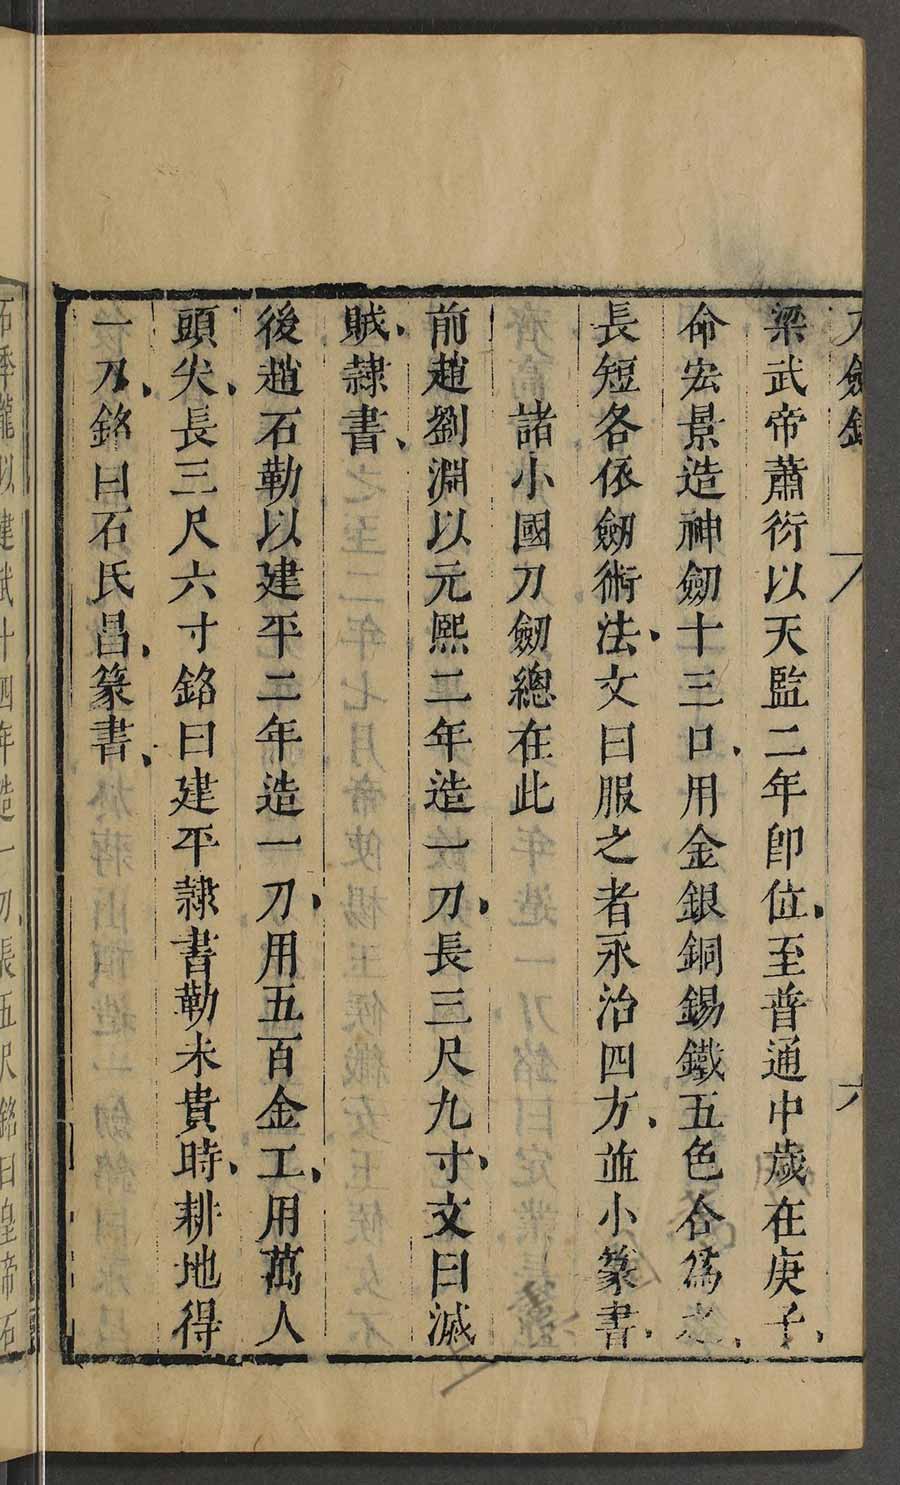 刀劒錄 六
梁武帝蕭衍以天監二年卽位至普通中歲在庚子
命宏景造神劒十三口用金銀銅錫鐵五色合爲之
長短各依劒術法文曰服之者永治四方並小篆書
諸小國刀劒總在此
前趙劉淵以元熙二年造一刀長三尺九寸文曰滅
賊隷書
後趙石勒以建平二年造一刀用五百金工用萬人
頭尖長三尺六寸銘曰建平隷書勒未貴時耕地得
一刀銘曰石氏昌篆書
石季龍以建武十四年造一刀長五尺銘曰皇帝石